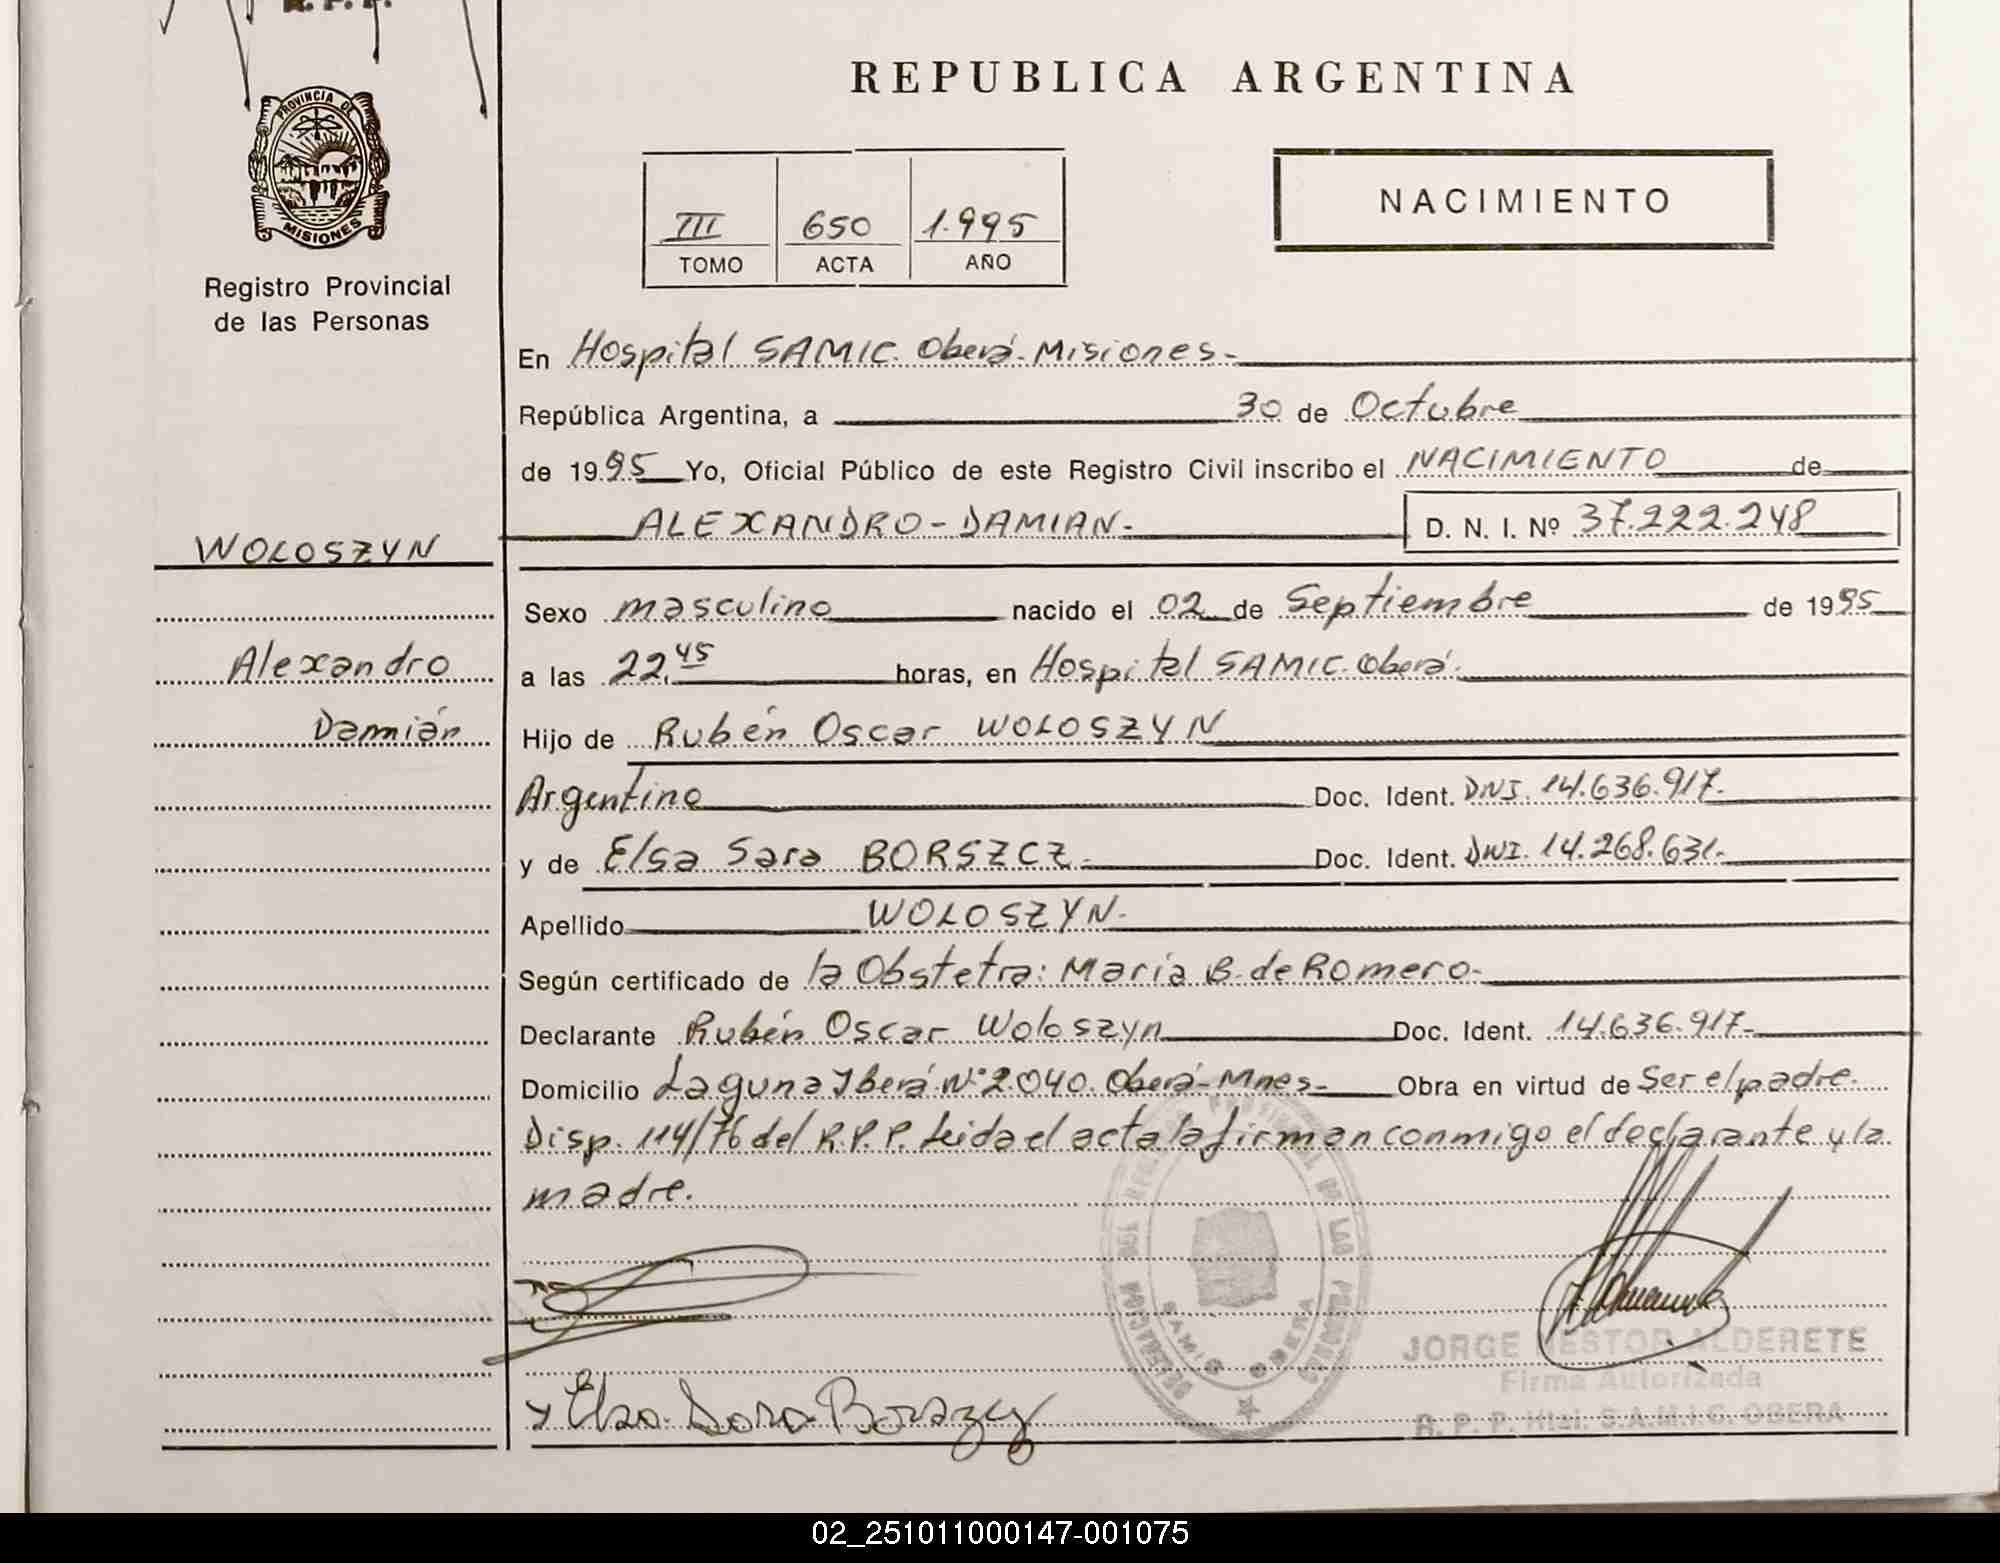 R. P. P.
REPUBLICA ARGENTINA
PROVINCIA DE
MISIONES
Registro Provincial
de las Personas
III 650 1.995
TOMO ACTA AÑO
NACIMIENTO
En Hospital SAMIC. Oberá-Misiones.-
República Argentina, a 30 de Octubre
de 1995 Yo, Oficial Público de este Registro Civil inscribo el NACIMIENTO de
ALEXANDRO-DAMIAN.- D. N. I. Nº 37.222.248
WOLOSZYN
Alexandro
Damián
Sexo masculino nacido el 02 de Septiembre de 1995
a las 22,45 horas, en Hospital SAMIC. Oberá.
Hijo de Rubén Oscar WOLOSZYN
Argentino Doc. Ident. DNI. 14.636.917.
y de Elsa Sara BORSZCZ.- Doc. Ident. DNI. 14.268.631.-
Apellido WOLOSZYN.-
Según certificado de la Obstetra: Maria B. de Romero.-
Declarante Rubén Oscar Woloszyn Doc. Ident. 14.636.917.-
Domicilio Laguna Iberá Nº 2.040. Oberá-Mnes.- Obra en virtud de Ser el padre.
Disp. 114/76 del R.P.P. Leida el acta la firman conmigo el declarante y la
madre.
JORGE NESTOR ALDERETE
Firma Autorizada
R. P. P. Htal. S.A.M.I.C. OBERA
SAMIC OBERA
Elsa Sara
02_251011000147-001075